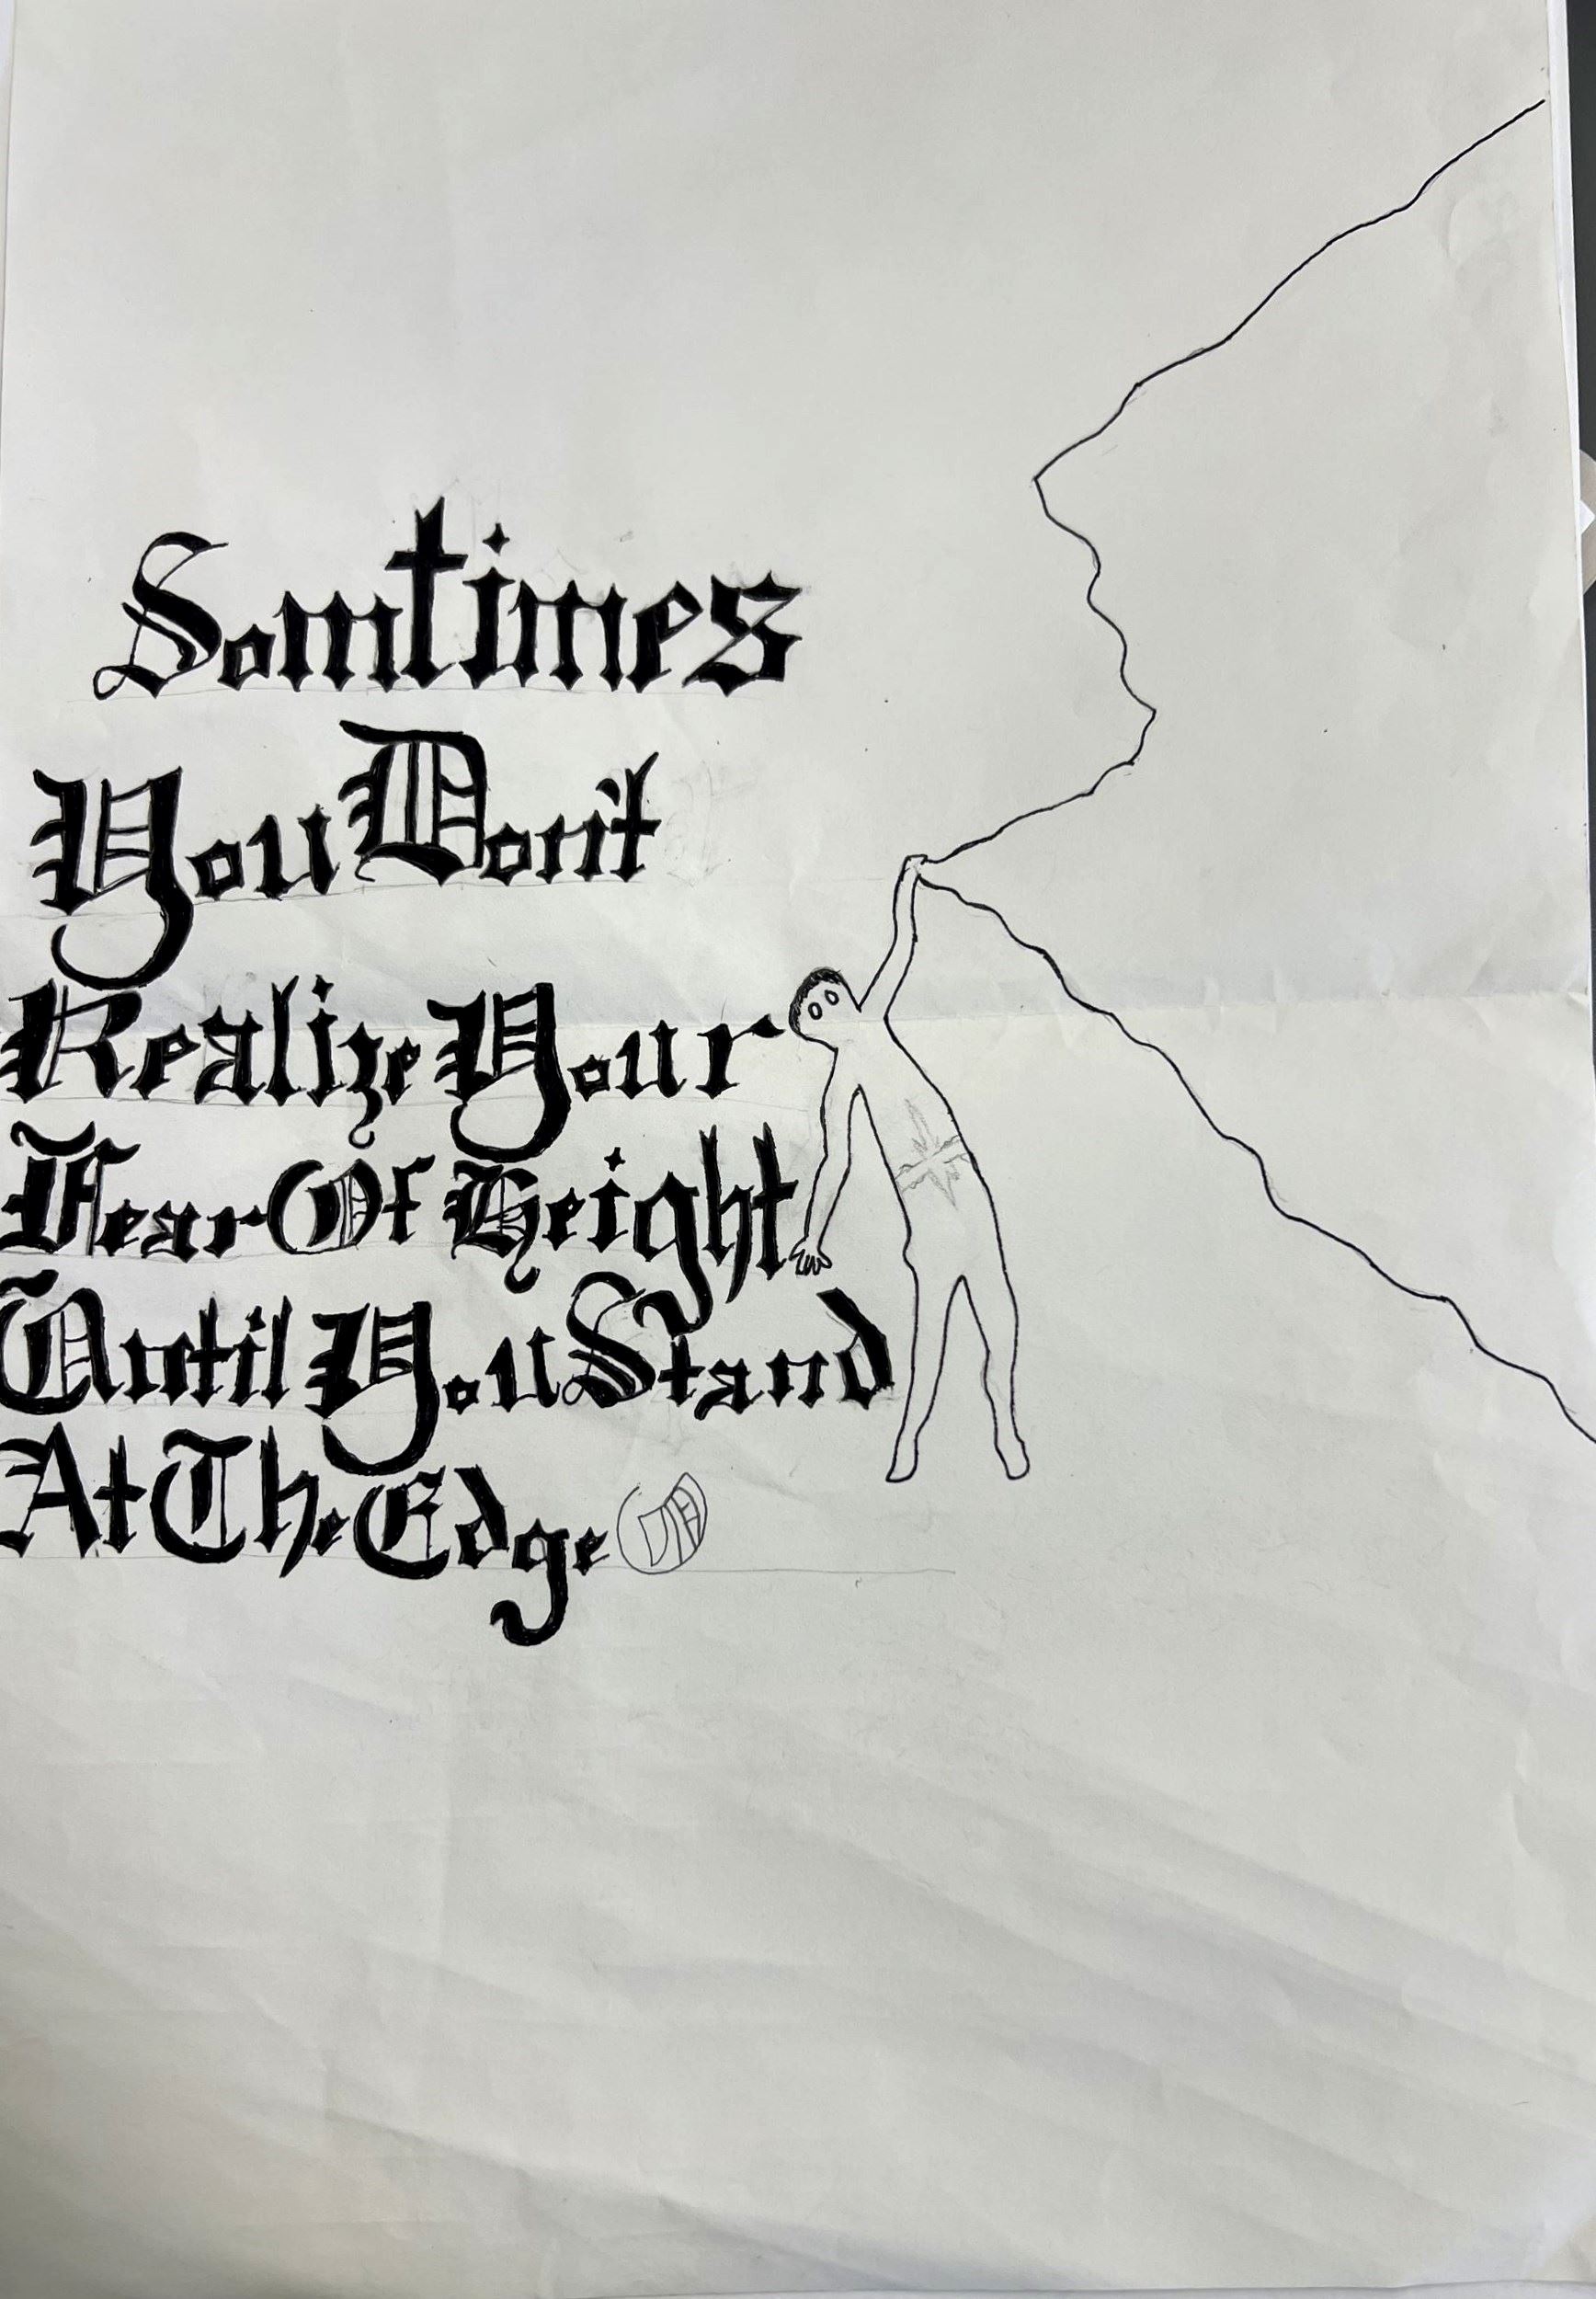 Somtimes
You Don't
Realize Your
Fear Of Height
Until You Stand
At The Edge